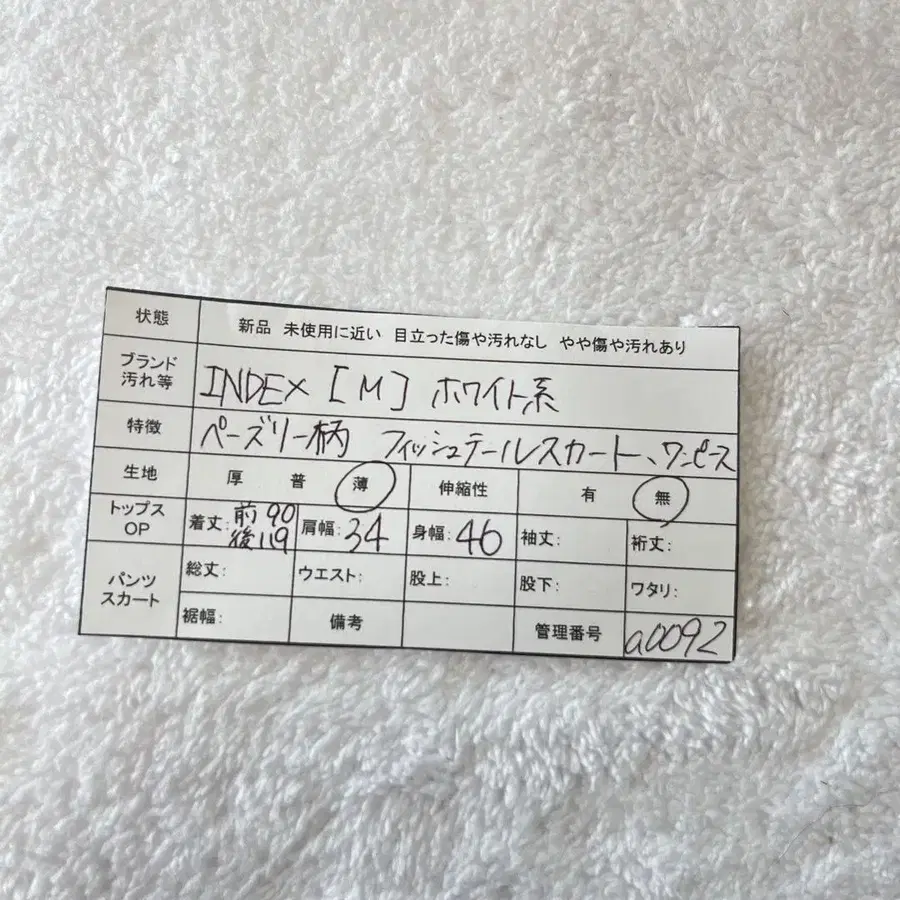 状態 新品 未使用に近い 目立った傷や汚れなし やや傷や汚れあり
ブランド
汚れ等 INDEX [M] ホワイト系
特徴 ペーズリー柄 フィッシュテールスカート、ワンピース
生地 厚 普 薄 伸縮性 有 無
トップス
OP 着丈: 前90
後119 肩幅: 34 身幅: 46 袖丈: 裄丈:
パンツ
スカート 総丈: ウエスト: 股上: 股下: ワタリ:
裾幅: 備考 管理番号 a0092